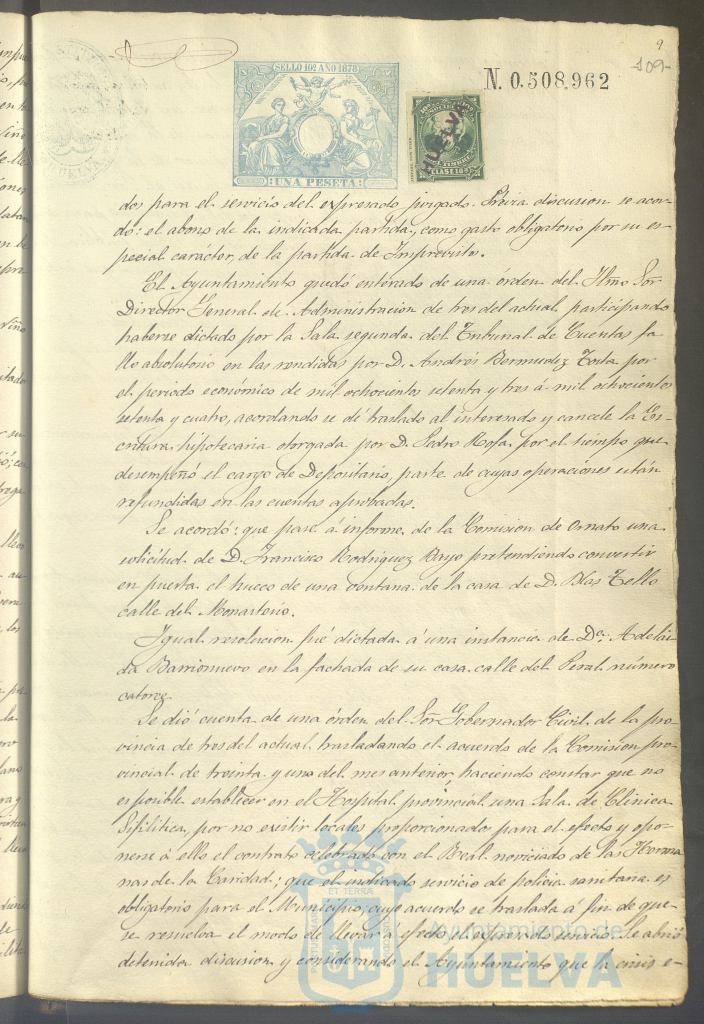 9
109-
SELLO 10º AÑO 1878
UNA PESETA
N. 0.508.962
HUELVA
CLASE 10ª
dor para el servicio del expresado juzgado. Prévia discusion se acor-
dó: el abono de la indicada partida, como gasto obligatorio por su es-
pecial carácter, de la partida de Imprevistos.
El Ayuntamiento quedó enterado de una órden del Iltmo Sor
Director General de Administracion de tres del actual, participando
haberse dictado por la Sala segunda del Tribunal de Cuentas fa-
llo absolutorio en las rendidas por D. Andrés Bermudez por
el periodo económico de mil ochocientos setenta y tres á mil ochocientos
setenta y cuatro, acordando se dé traslado al interesado y cancele la Es-
critura hipotecaria otorgada por D. Pedro por el tiempo que
desempeñó el cargo de Depositario, parte de cuyas operaciones están
refundidas en las cuentas aprobadas.
Se acordó: que pase á informe de la Comision de Ornato una
solicitud de D. Francisco Rodriguez pretendiendo convertir
en puerta el hueco de una ventana de la casa de D. Blas Tello
calle del Monasterio.
Igual resolucion fué dictada á una instancia de Da. Adelai-
da Barrionuevo en la fachada de su casa calle del Peral número
catorce.
Se dió cuenta de una órden del Sor Gobernador Civil de la pro-
vincia de tres del actual, trasladando el acuerdo de la Comision pro-
vincial de treinta y uno del mes anterior, haciendo constar que no
es posible establecer en el Hospital provincial una Sala de Clínica
Sifilítica, por no existir locales proporcionados para el efecto y opo-
nerse á ello el contrato celebrado con el Real noviciado de las Herma-
nas de la Caridad; que el indicado servicio de policia sanitaria es
obligatorio para el Municipio; cuyo acuerdo se traslada á fin de que
se resuelva el modo de llevar á efecto el espresado servicio. Se abrió
detenida discusion y considerando el Ayuntamiento que la crisis e-
Ayuntamiento de
HUELVA